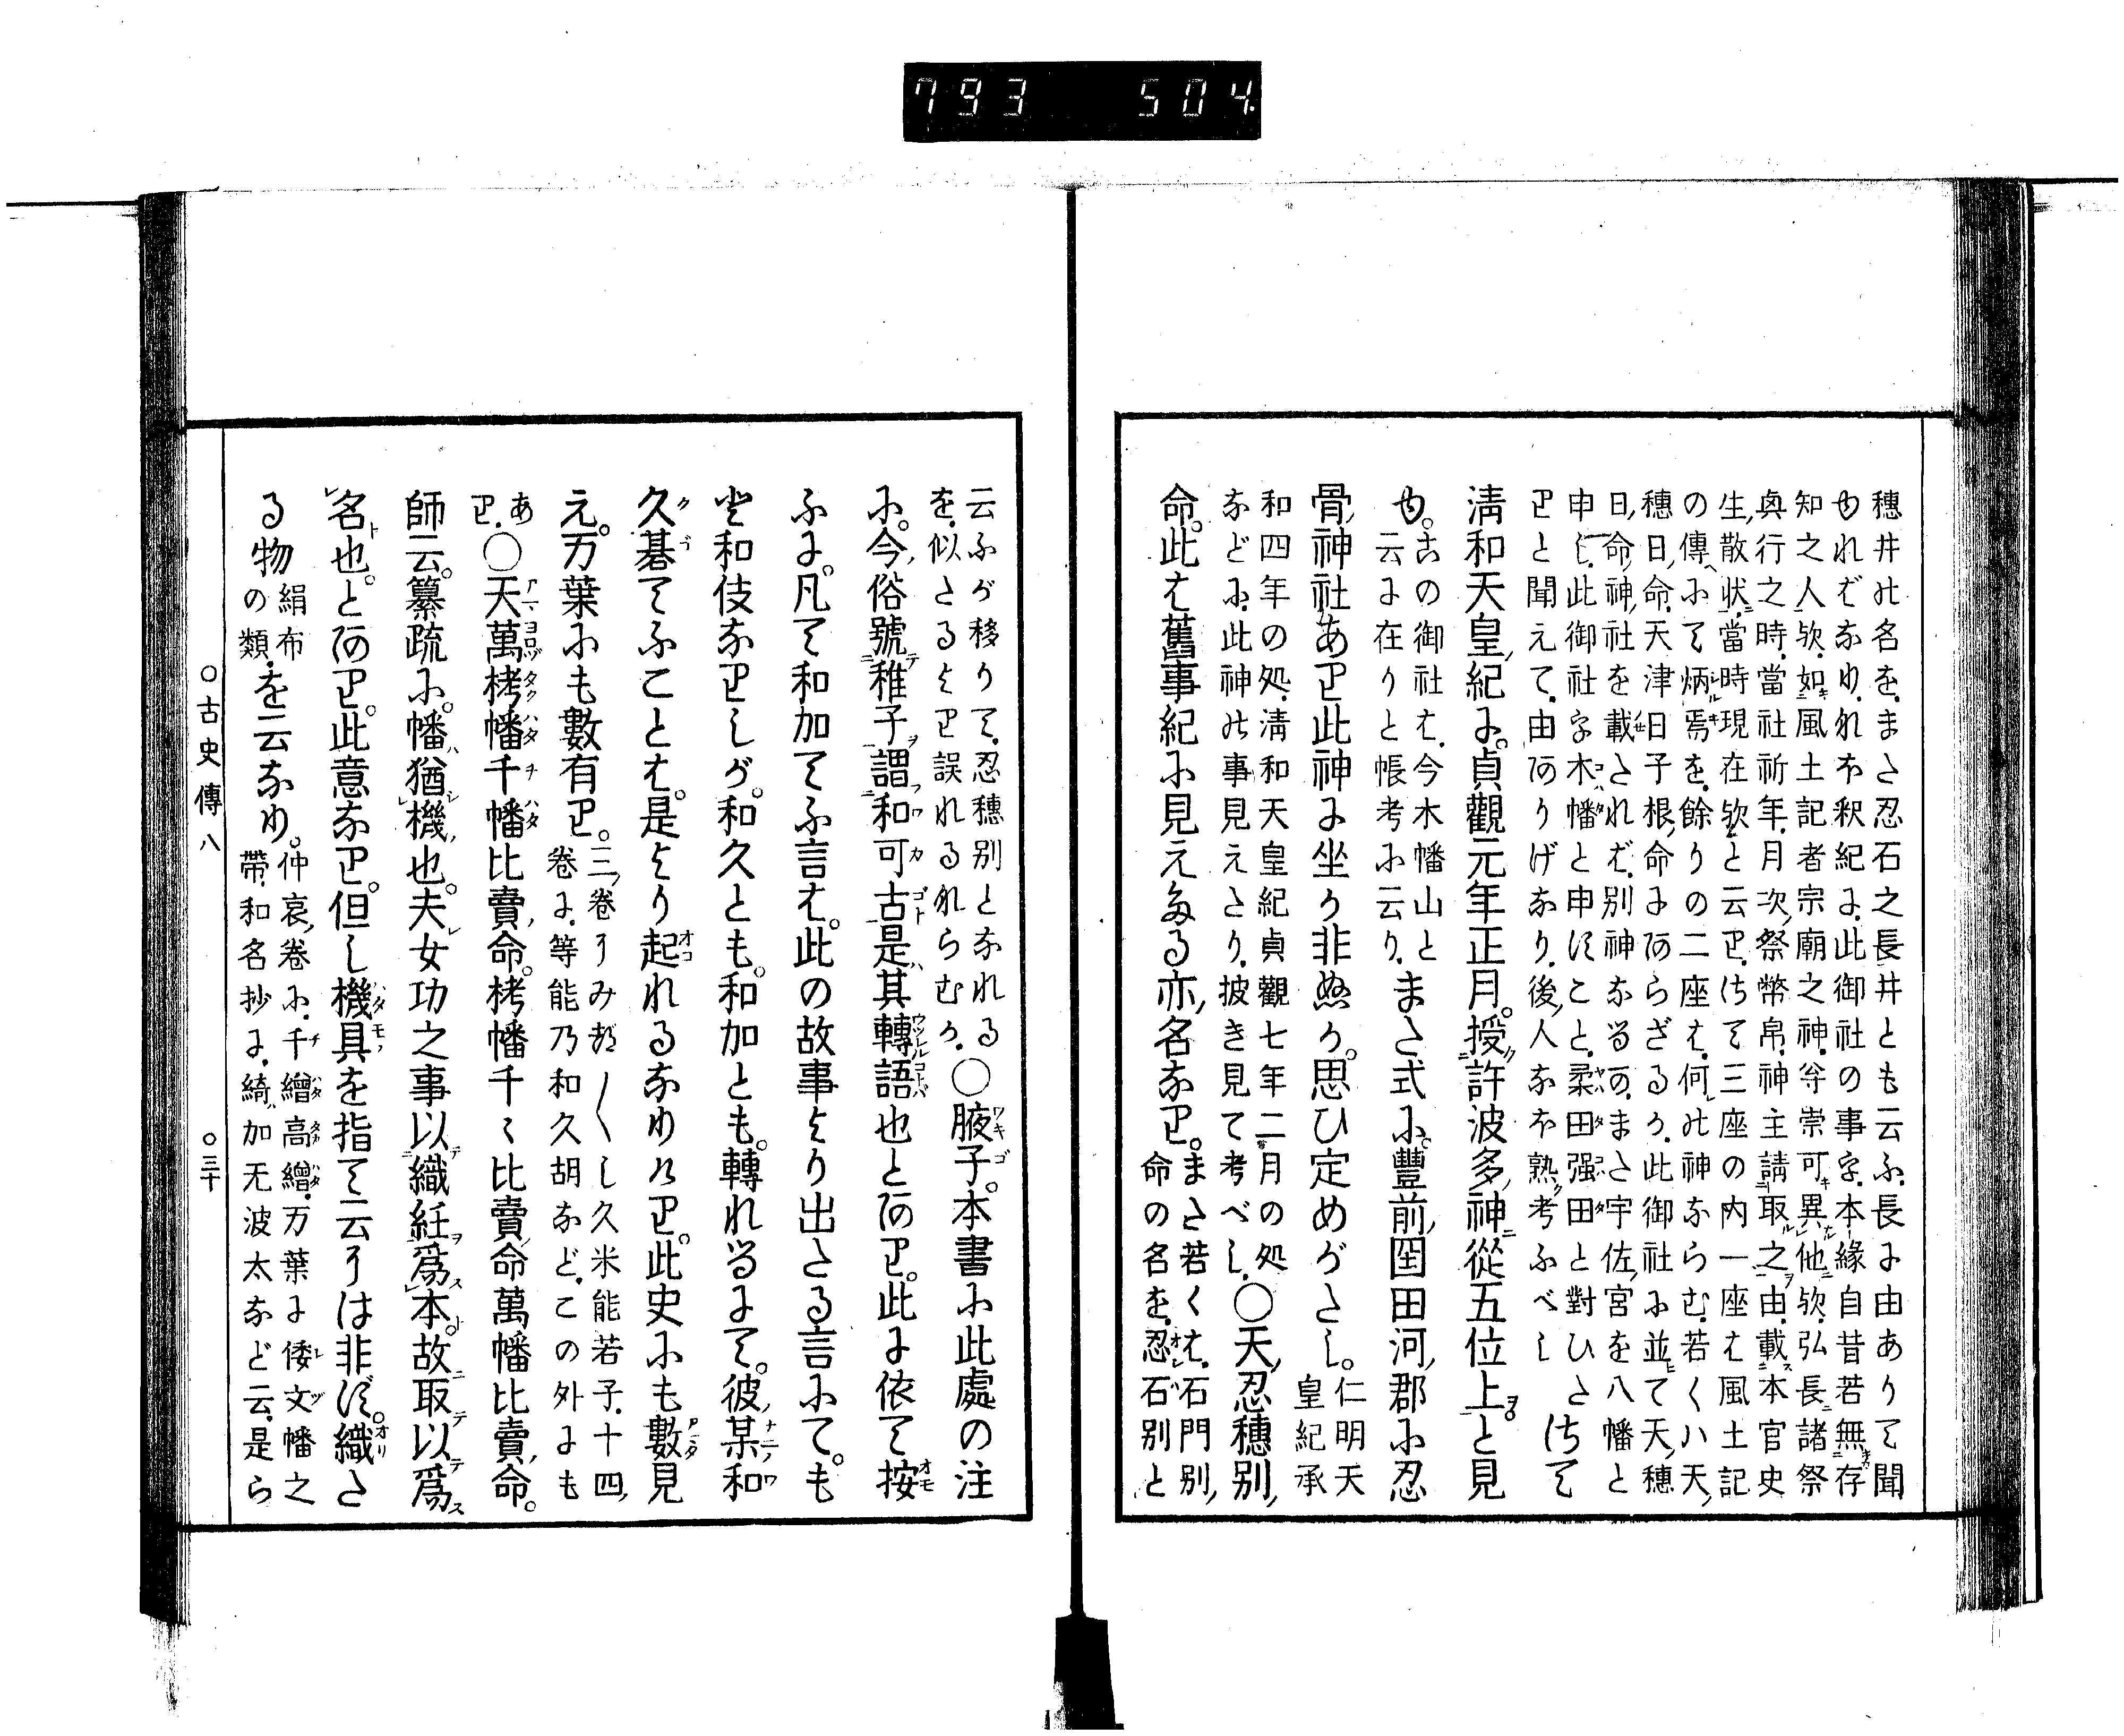 793 504
穗井の名を.また忍石之長井とも云ふ.長に由ありて聞
ゆればなり.なほ釈紀に.此御社の事を.本緣自昔若無存
知之人欤.如風土記者宗廟之神.尤崇可異他欤.弘長諸祭
奠行之時.當社祈年.月次祭幣帛.神主請取之由.載本官史
生散状.當時現在欤と云り.さて三座の内一座は風土記
の傳にて炳焉を.餘りの二座は.何の神ならむ.若くハ天
穗日命.天津日子根命にやあらざるか.此御社に並て天穗
日命神社を載されば.別神なるのまた宇佐宮を八幡と
申し.此御社を木幡と申すこと.柔田强田と對ひた
りと聞えて.由ありげなり.後人なほ熟考ふべし
さて
淸和天皇紀に。貞觀元年正月。授許波多神從五位上。と見
ゆ。
この御社は.今木幡山と
云に在りと帳考に云り.
また式に。豐前国田河郡に忍
骨神社あり此神に坐か非ぬか。思ひ定めがたし。
仁明天
皇紀承
和四年の処.淸和天皇紀貞觀七年二月の処
などに.此神の事見えたり.披き見て考べし.
〇天忍穗別
命。此は舊事紀に見えたる亦名なり。
また若くは.石門別
命の名を.忍石别と
云ふが移りて.忍穗別となれる
を.似たるより誤れるならむか.
〇腋子。本書に此處の注
に。今俗號稚子謂和可古是其轉語也とあり。此に依て按
ふに。凡て和加てふ言は。此の故事より出たる言にて。も
と和伎なりしが。和久とも。和加とも。轉れるにて。彼某和
久碁てふことは。是より起れるなめり。此史にも數見
え。万葉にも數有り。
三卷うみ都〱し久米能若子.十四
卷に.等能乃和久胡など.この外にも
あ
り.
〇天萬栲幡千幡比賣命。栲幡千〻比賣命萬幡比賣命。
師云。纂疏に。幡猶機也。夫女功之事以織紝爲本。故取以爲
名也。とあり。此意なり。但し機具を指て云うは非ず。織た
る物
絹布
の類.
を云なり。
仲哀卷に.千繒高繒.万葉に倭文幡之
帶.和名抄に.綺加无波太など云.是ら
〇古史傳八
〇三十